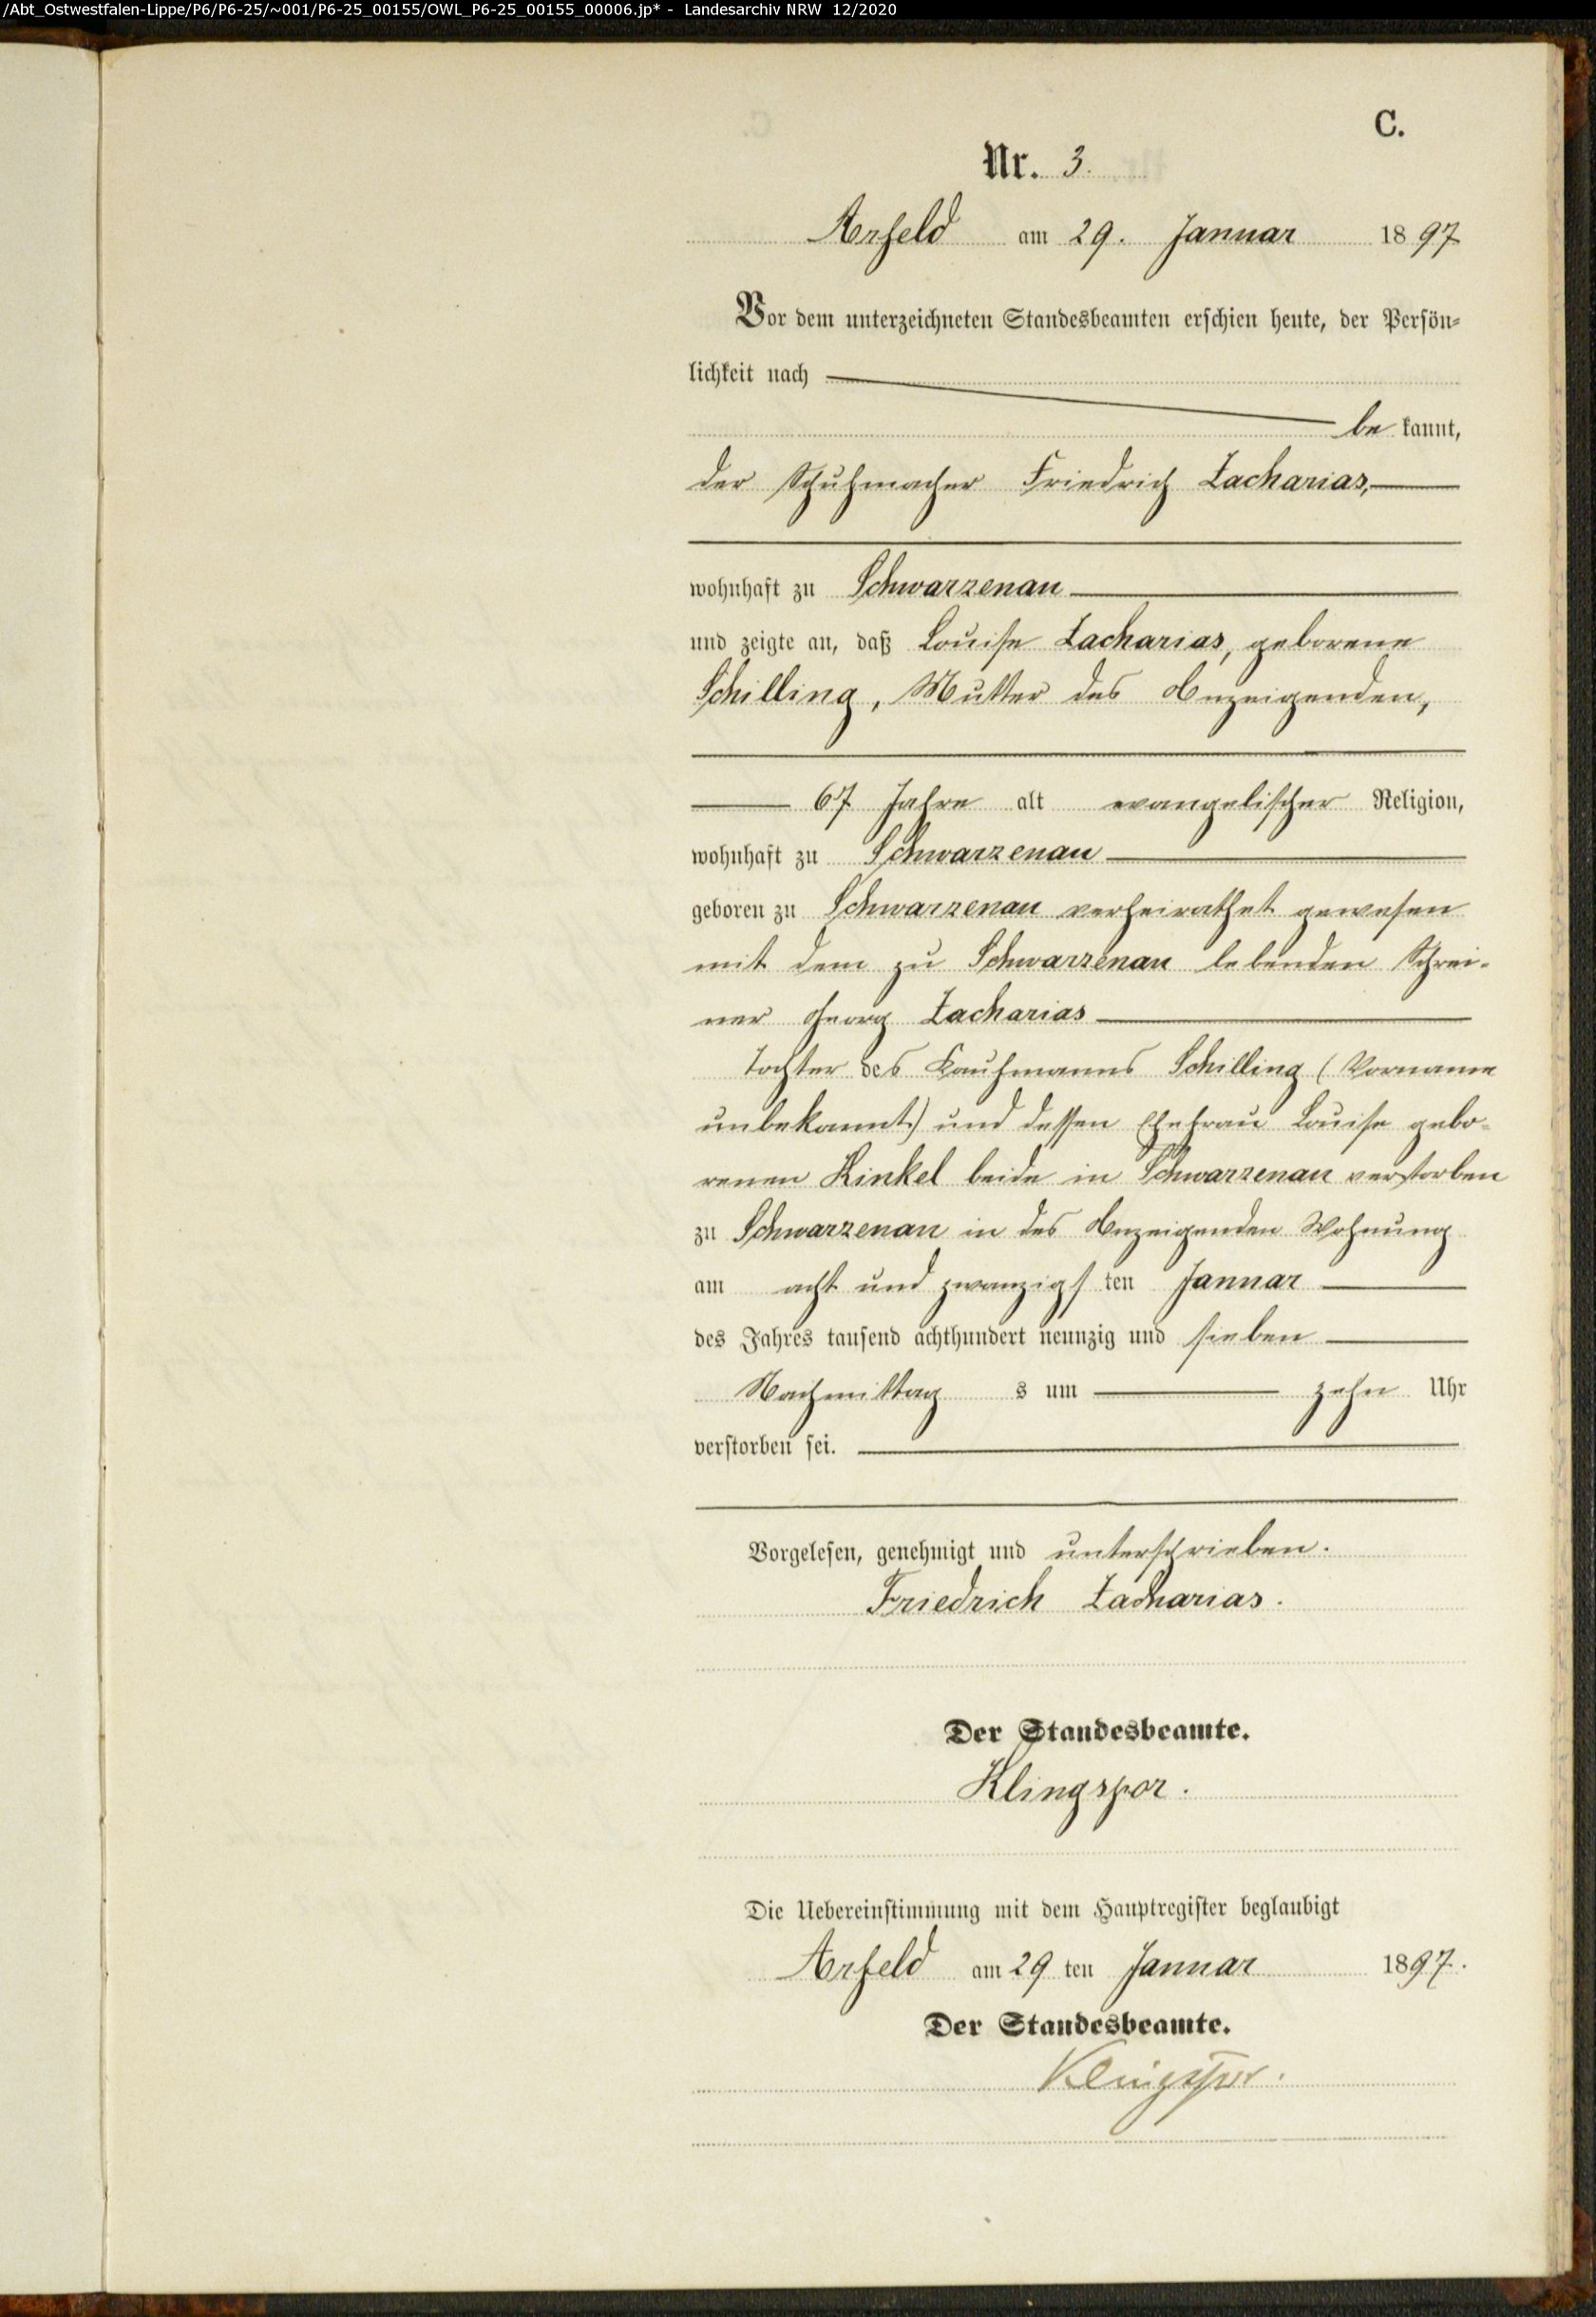 /Abt_Ostwestfalen-Lippe/P6/P6-25/~001/P6-25_00155/OWL_P6-25_00155_00006.jp* - Landesarchiv NRW 12/2020
C.
Nr. 3.
Arfeld am 29. Januar 1897
Vor dem unterzeichneten Standesbeamten erschien heute, der Persön-
lichkeit nach
be kannt,
der Schuhmacher Friedrich Zacharias,
wohnhaft zu Schwarzenau
und zeigte an, daß Louise Zacharias, geborene
Schilling, Mutter des Anzeigenden,
67 Jahre alt evangelischer Religion,
wohnhaft zu Schwarzenau
geboren zu Schwarzenau verheirathet gewesen
mit dem zu Schwarzenau lebenden Schrei-
ner Georg Zacharias
Tochter des Kaufmanns Schilling (Vorname
unbekannt) und dessen Ehefrau Louise gebo-
renen Kinkel beide in Schwarzenau verstorben
zu Schwarzenau in des Anzeigenden Wohnung
am acht und zwanzigsten Januar
des Jahres tausend achthundert neunzig und sieben
Nachmittags um zehn Uhr
verstorben sei.
Vorgelesen, genehmigt und unterschrieben.
Friedrich Zacharias.
Der Standesbeamte.
Klingspor.
Die Uebereinstimmung mit dem Hauptregister beglaubigt
Arfeld am 29 ten Januar 1897.
Der Standesbeamte.
Klingspor.